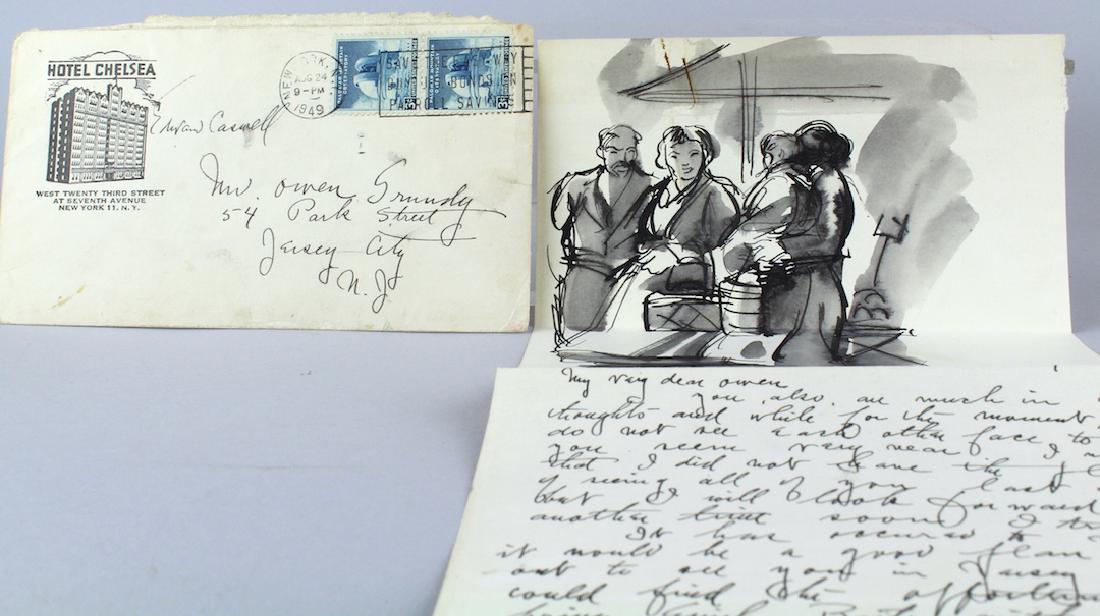 HOTEL CHELSEA
WEST TWENTY THIRD STREET
AT SEVENTH AVENUE
NEW YORK 11. N. Y.
Caswell
NEW YORK, N.Y.
AUG 24
9-PM
1949
PAYROLL SAVINGS
3¢
3¢
Mr. Owen Grundy
54 Park Street
Jersey City
N. J.
My very dear Owen
You also are much in
thoughts and while for the moment
do not see each other face to
you seem very near I
that I did not have the
of seeing all of you last
but I will look forward
another time soon I
It has occured to
it would be a good plan
out to see you in Jersey
could find the